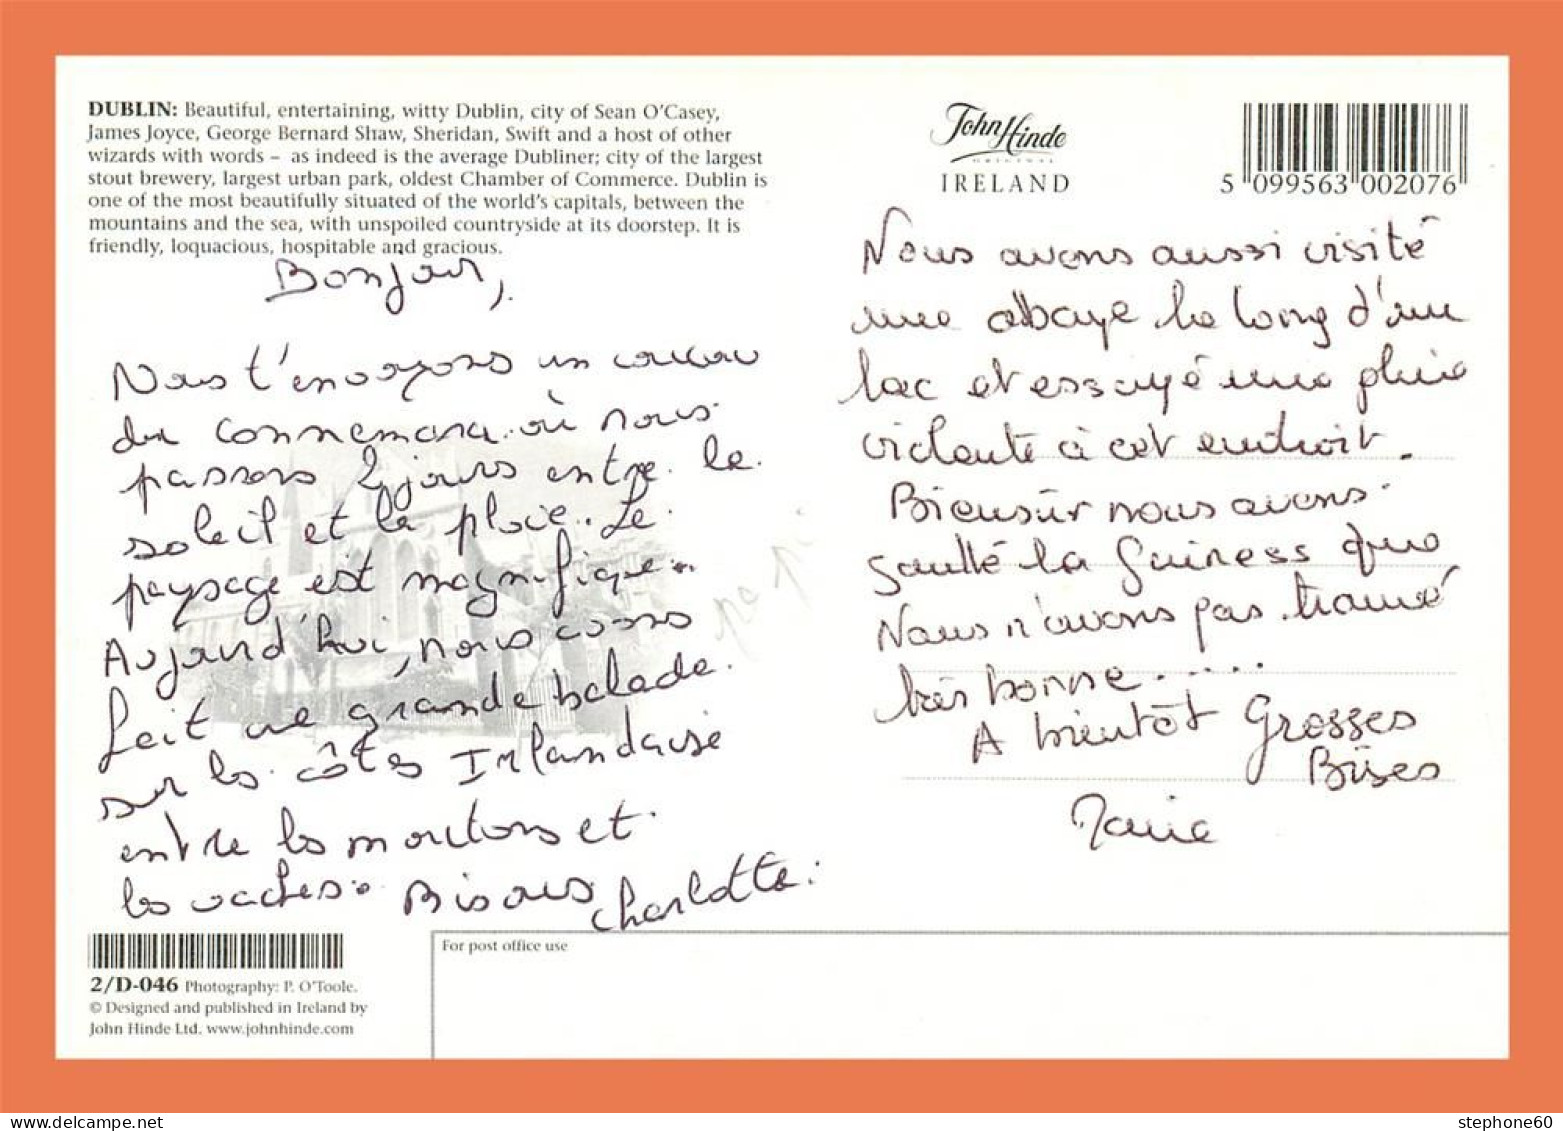 DUBLIN: Beautiful, entertaining, witty Dublin, city of Sean O'Casey,
James Joyce, George Bernard Shaw, Sheridan, Swift and a host of other
wizards with words – as indeed is the average Dubliner; city of the largest
stout brewery, largest urban park, oldest Chamber of Commerce. Dublin is
one of the most beautifully situated of the world's capitals, between the
mountains and the sea, with unspoiled countryside at its doorstep. It is
friendly, loquacious, hospitable and gracious.
Bonjour,
Nous t'envoyons un coucou
du connemara où nous
passons 2 jours entre le
soleil et la pluie.. Le
paysage est magnifique..
Aujourd'hui, nous
fait une grande balade
sur les côtes Irlandaise
entre les moutons et
les vaches. Bisous Charlotte.
John Hinde
ORIGINAL
IRELAND
5 099563 002076
Nous avons aussi visité
une abbaye le long d'un
lac et essayé une pluie
violente à cet endroit.
Biensûr nous avons
goutté la Guiness que
Nous n'avons pas trouvé
très bonne.....
A bientôt Grosses
Bises
2/D-046 Photography: P. O'Toole.
© Designed and published in Ireland by
John Hinde Ltd. www.johnhinde.com
For post office use
stephone60